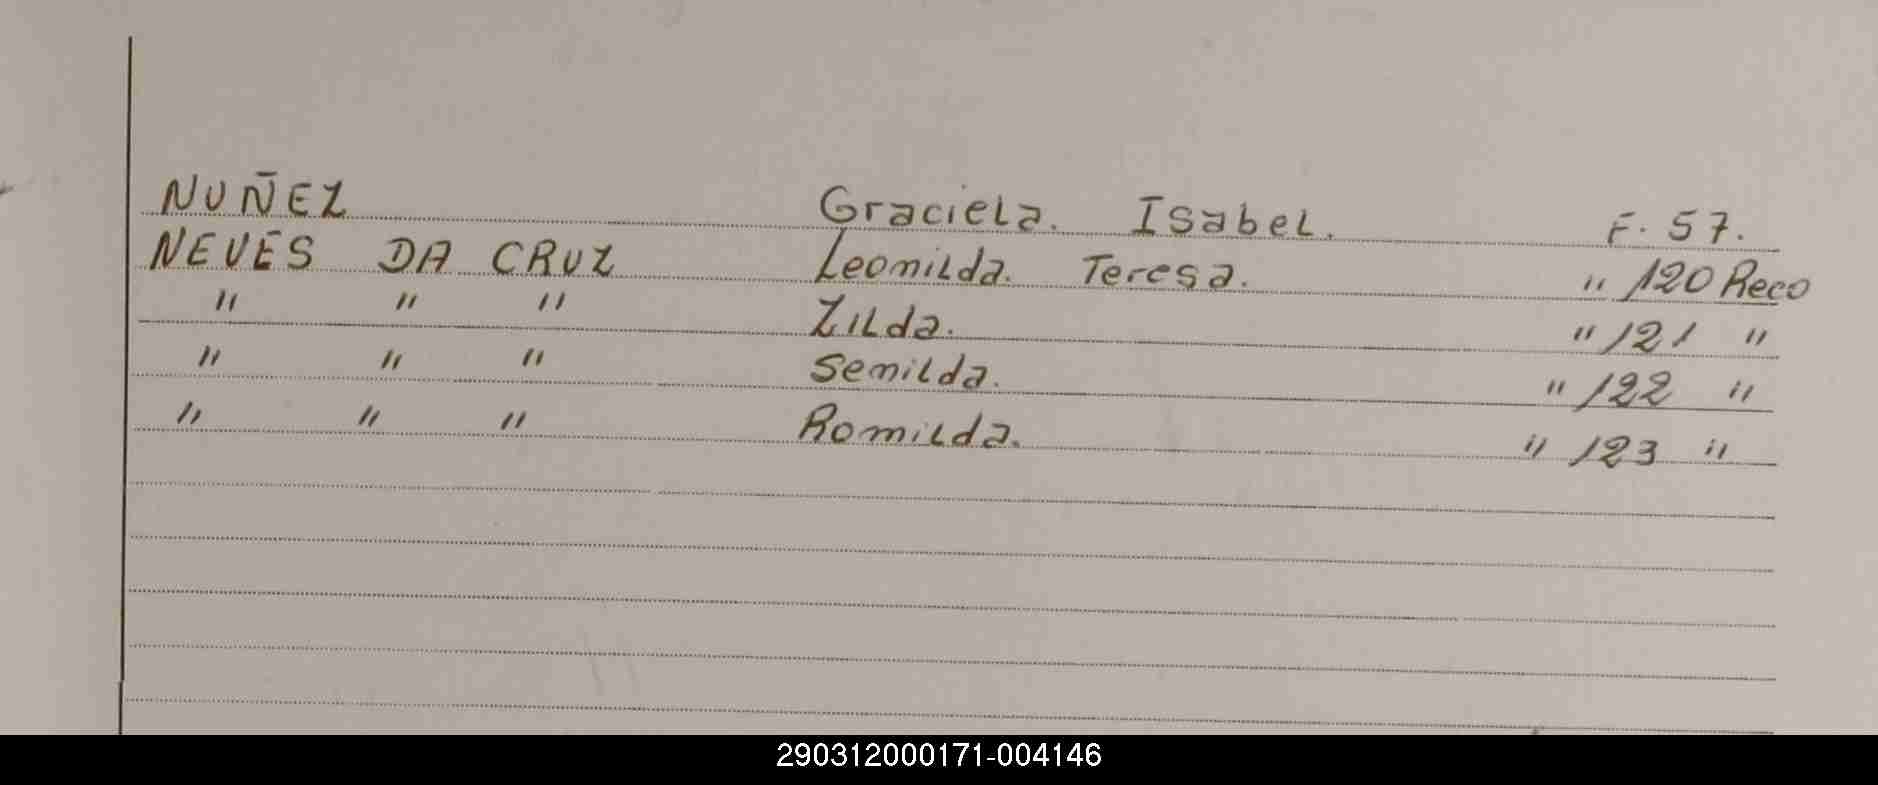 NUÑEZ Graciela. Isabel. F. 57.
NEVES DA CRUZ Leomilda. Teresa. " 120 Reco
" " " Zilda. " 121 "
" " " Semilda. " 122 "
" " " Romilda. " 123 "
290312000171-004146